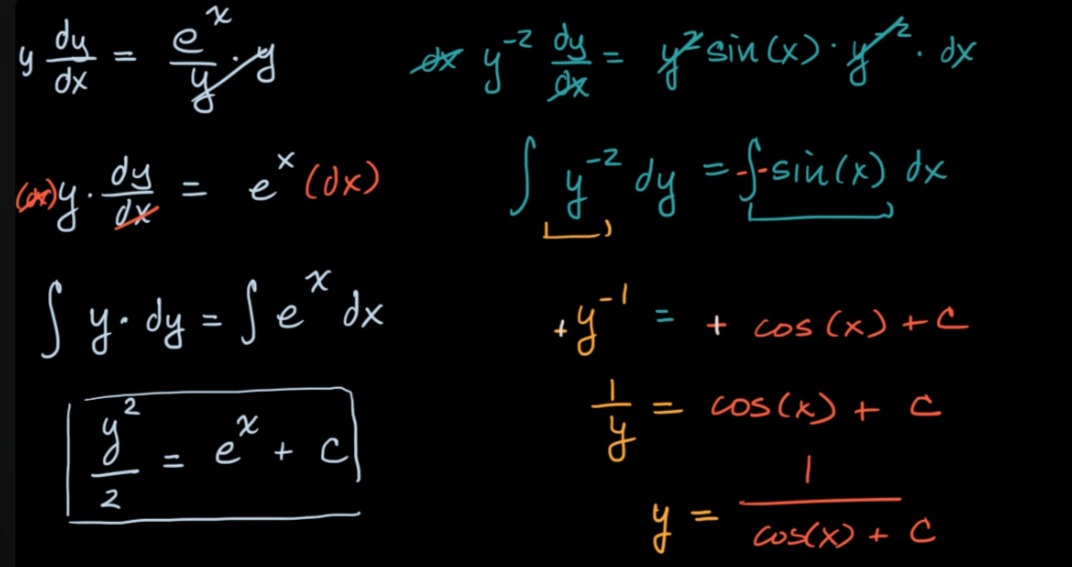 y dy/dx = e^x/y · y
(dx) y · dy/dx = e^x (dx)
∫ y · dy = ∫ e^x dx
y^2/2 = e^x + c
dx y^-2 dy/dx = y^2 sin(x) · y^-2 · dx
∫ y^-2 dy = -∫-sin(x) dx
+y^-1 = + cos(x) + c
1/y = cos(x) + c
y = 1/(cos(x) + c)